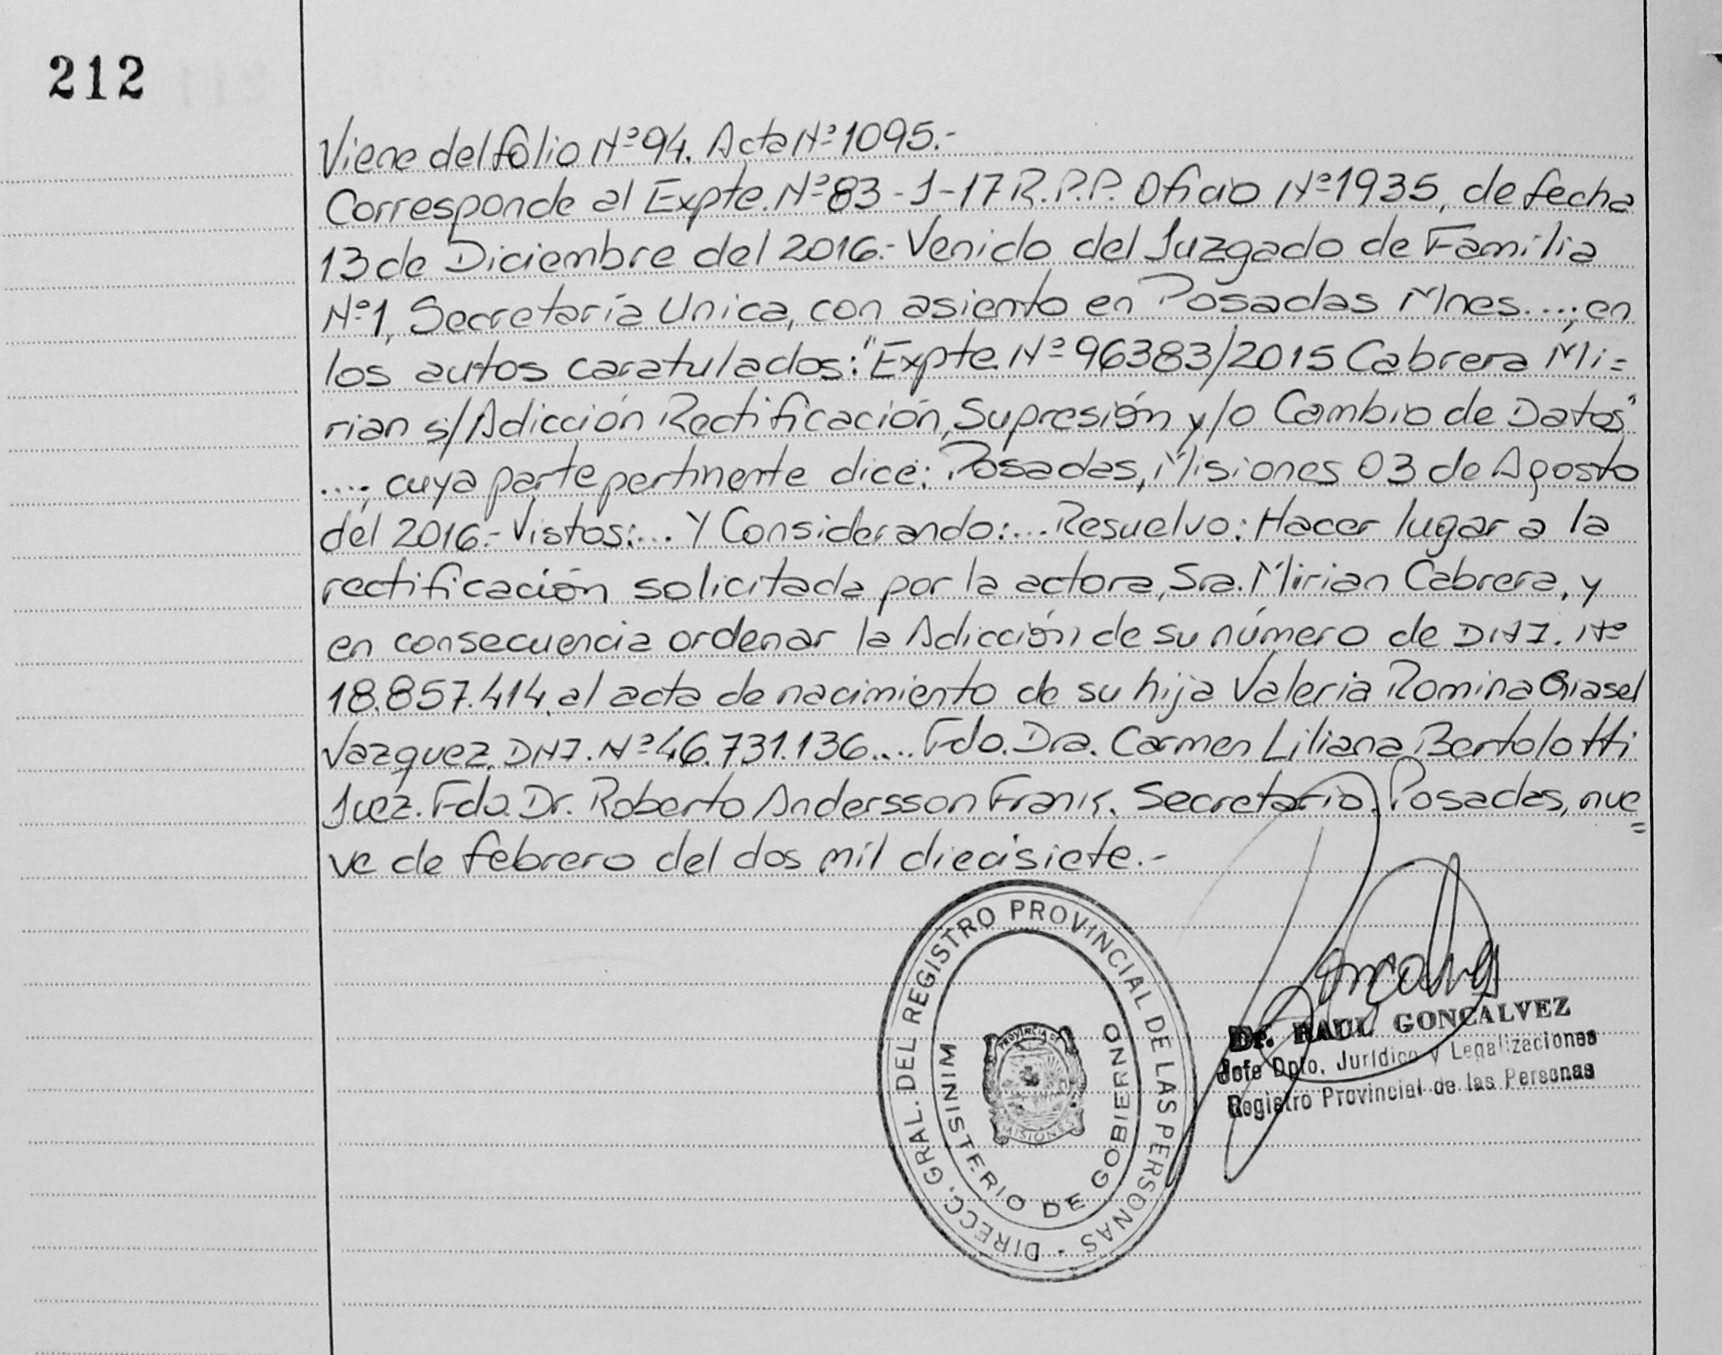 212
Viene del folio Nº 94. Acta Nº 1095.-
Corresponde al Expte. Nº 83-J-17 R.P.P. Oficio Nº 1935, de fecha
13 de Diciembre del 2016.- Venido del Juzgado de Familia
Nº 1, Secretaría Unica, con asiento en Posadas Mnes...., en
los autos caratulados: "Expte. Nº 96383/2015 Cabrera Mi=
rian s/Adicción Rectificación, Supresión y/o Cambio de Datos"
...., cuya parte pertinente dice: Posadas, Misiones 03 de Agosto
del 2016.- Vistos:... Y Considerando:... Resuelvo: Hacer lugar a la
rectificación solicitada por la actora, Sra. Mirian Cabrera, y
en consecuencia ordenar la Adicción de su número de DNI. Nº
18.857.414, al acta de nacimiento de su hija Valeria Romina Giasel
Vazquez, DNI. Nº 46.731.136.... Fdo. Dra. Carmen Liliana Bertolotti
Juez. Fdo. Dr. Roberto Andersson Frank. Secretario. Posadas, nue=
ve de febrero del dos mil diecisiete.-
DIRECC. GRAL. DEL REGISTRO PROVINCIAL DE LAS PERSONAS -
MINISTERIO DE GOBIERNO
PROVINCIA DE
MISIONES
Dr. RAUL GONCALVEZ
Jefe Dpto. Jurídico y Legalizaciones
Registro Provincial de las Personas